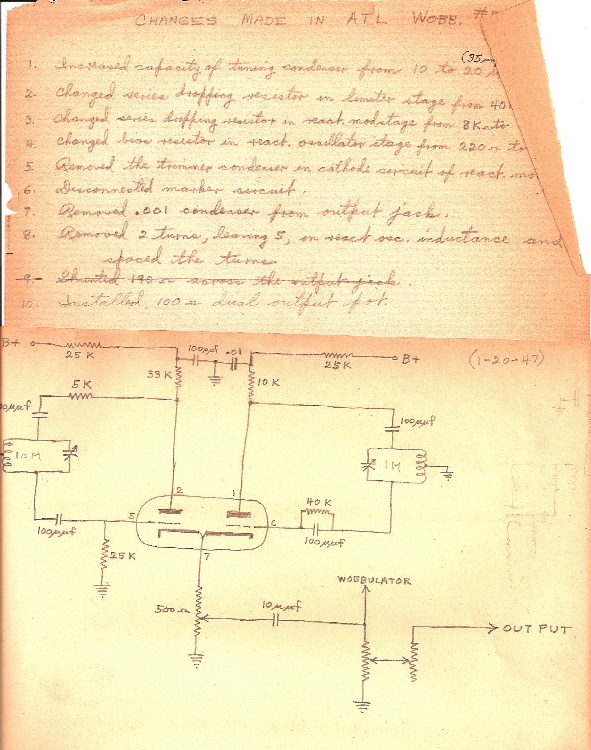 CHANGES MADE IN ATL WOBB. #
(35
1. Increased capacity of tuning condenser from 10 to 20
2. Changed series dropping resistor in limiter stage from 40K
3. Changed series dropping resistor in react. mod stage from 8K to
4. Changed bias resistor in react. oscillator stage from 220Ω to
5. Removed the trimmer condenser in cathode circuit of react. mo
6. Disconnected marker circuit.
7. Removed .001 condenser from output jack.
8. Removed 2 turns, leaving 5, on react osc. inductance and
spaced the turns
9. Shunted 190Ω across the output jack.
10. Installed 100Ω dual output pot.
B+
25 K
100μμf
.01
25K
B+
(1-20-47)
33 K
10 K
5 K
00μμf
100μμf
10M
1M
2
1
40 K
5
6
100μμf
100μμf
7
25 K
WOBBULATOR
500Ω
10μμf
OUTPUT